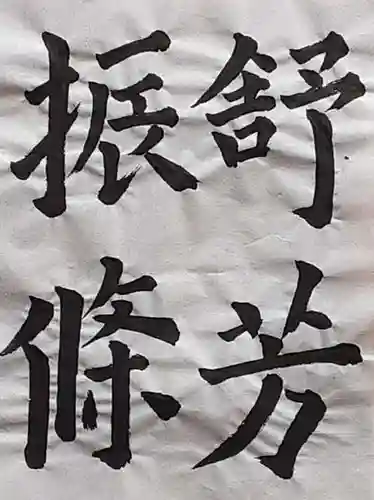 舒芳
振條